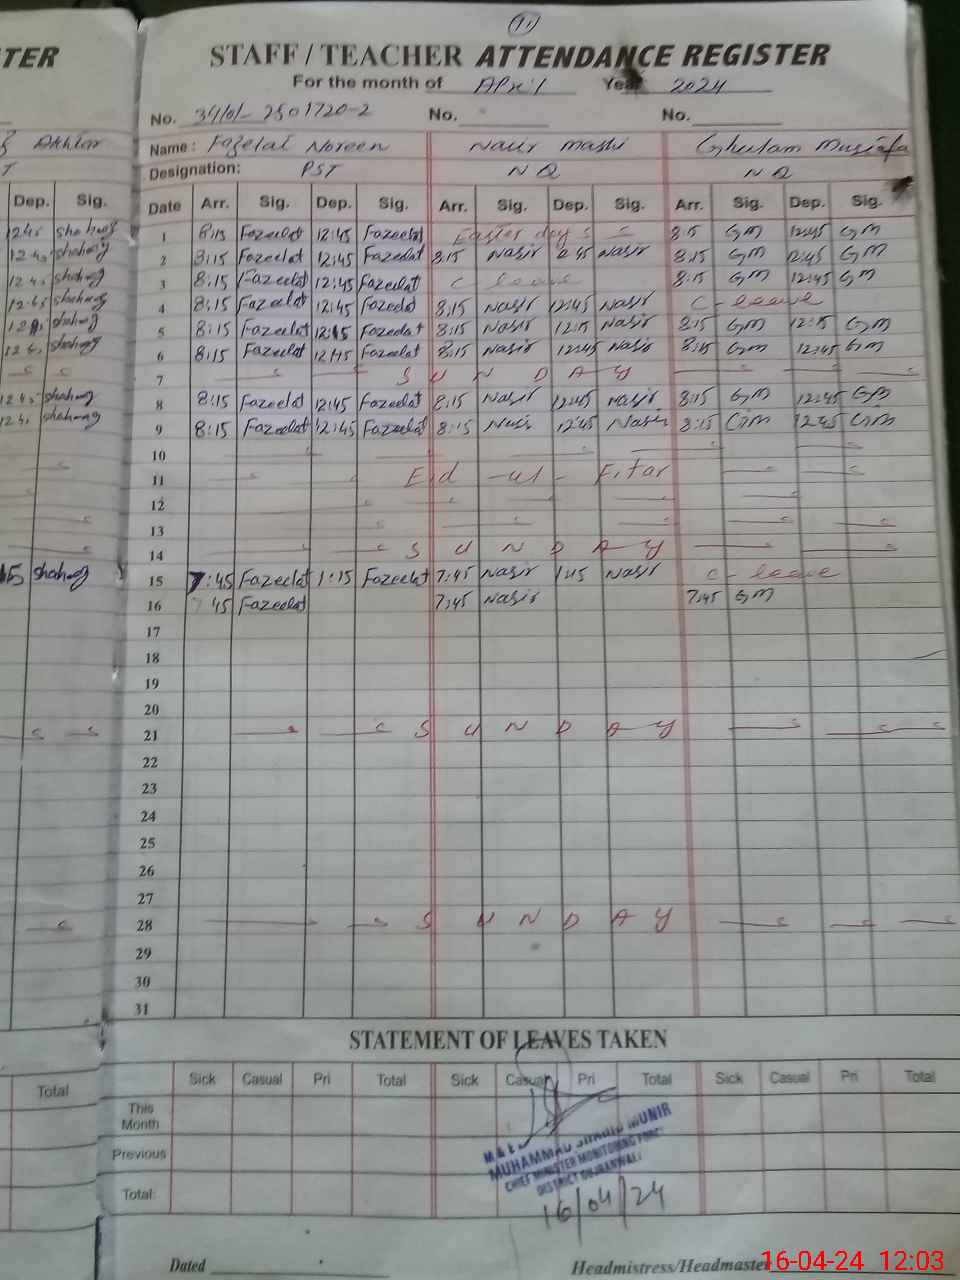 11
TER STAFF / TEACHER ATTENDANCE REGISTER
For the month of April Year 2024
No. 34101-2501720-2 No. No.
Akhtar Name: Fazelat Noreen Nasir mashi Ghulam Mustafa
T Designation: PST N Q N Q
Dep. Sig. Date Arr. Sig. Dep. Sig. Arr. Sig. Dep. Sig. Arr. Sig. Dep. Sig.
1245 shahnaz 1 8:15 Fazeelat 12:45 Fazeelat Easter day 8:15 GM 12:45 GM
12.45 shahnaz 2 8:15 Fazeelat 12:45 Fazeelat 8:15 Nasir 12:45 Nasir 8:15 GM 12:45 GM
12.45 shahnaz 3 8:15 Fazeelat 12:45 Fazeelat C-leave 8:15 GM 12:45 GM
12.45 shahnaz 4 8:15 Fazeelat 12:45 Fazeelat 8:15 Nasir 12:45 Nasir C-leave
shahnaz 5 8:15 Fazeelat 12:15 Fazeelat 8:15 Nasir 12:15 Nasir 8:15 GM 12:15 GM
12.45 shahnaz 6 8:15 Fazeelat 12:45 Fazeelat 8:15 Nasir 12:45 Nasir 8:15 GM 12:45 GM
7 S U N D A Y
12.45 shahnaz 8 8:15 Fazeelat 12:45 Fazeelat 8:15 Nasir 12:45 Nasir 8:15 GM 12:45 GM
12.45 shahnaz 9 8:15 Fazeelat 12:45 Fazeelat 8:15 Nasir 12:45 Nasir 8:15 GM 12:45 GM
10
11 Eid -ul- Fitar
12
13
14 S U N D A Y
15 shahnaz 15 7:45 Fazeelat 1:15 Fazeelat 7:45 Nasir 1:45 Nasir C-leave
16 7:45 Fazeelat 7:45 Nasir 7:45 GM
17
18
19
20
21 S U N D A Y
22
23
24
25
26
27
28 S U N D A Y
29
30
31
STATEMENT OF LEAVES TAKEN
Total Sick Casual Pri Total Sick Casual Pri Total Sick Casual Pri Total
This Month
Previous
Total:
MUHAMMAD SHAHID MUNIR
CHIEF MINISTER MONITORING FORCE
DISTRICT GUJRANWALA
16/04/24
Dated Headmistress/Headmaster
16-04-24 12:03